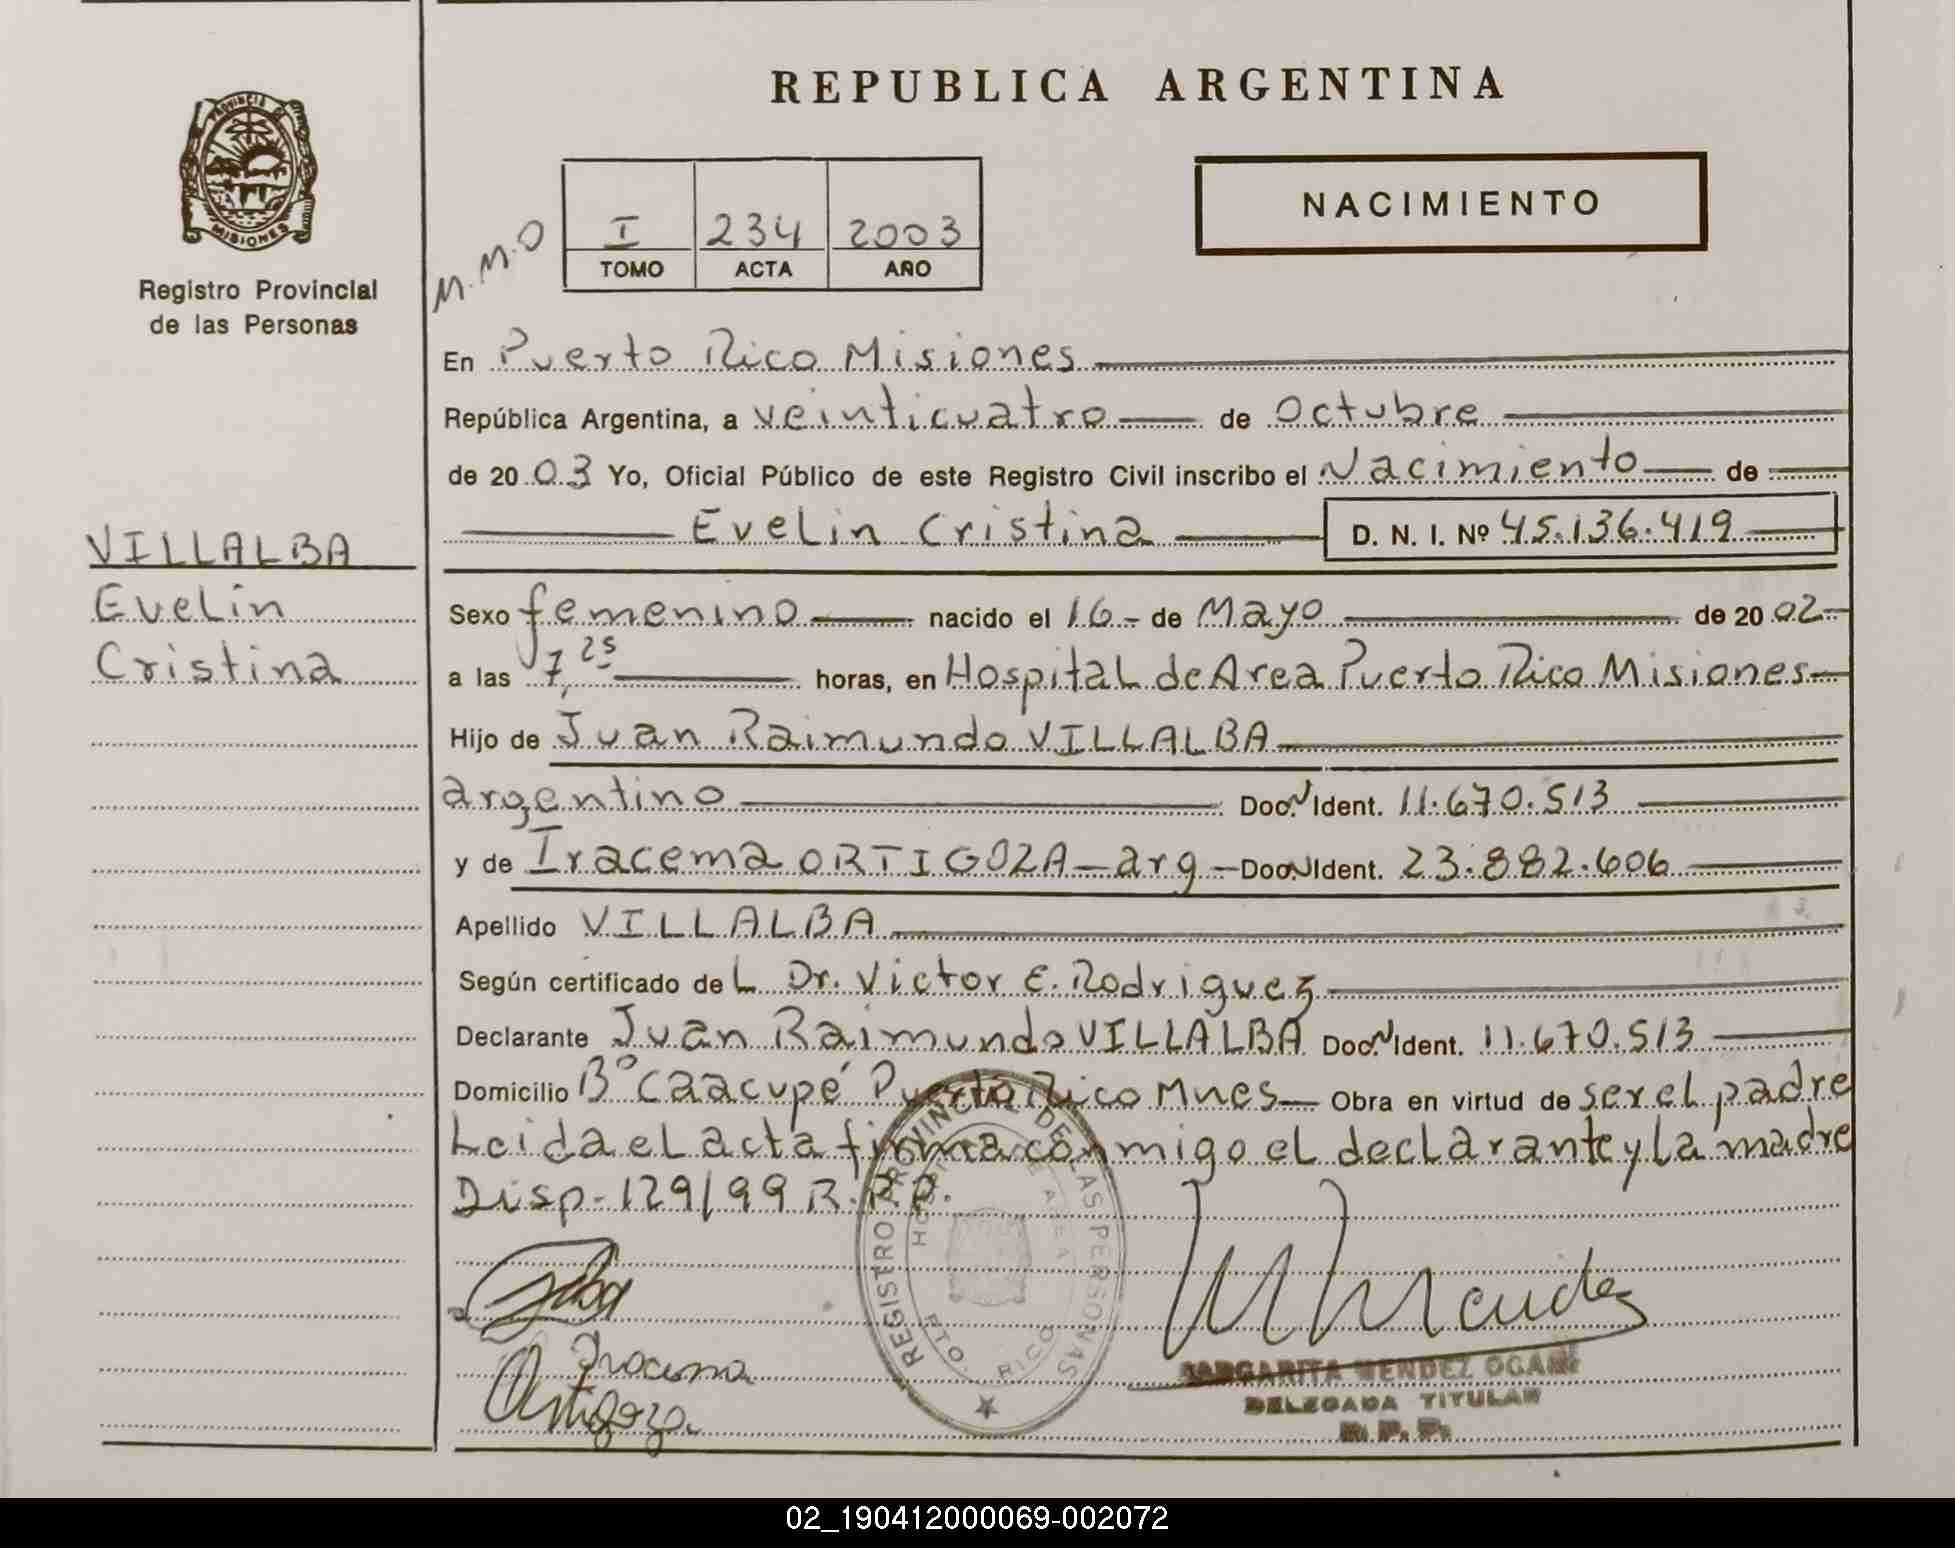 REPUBLICA ARGENTINA
PROVINCIA DE
MISIONES
Registro Provincial
de las Personas
NACIMIENTO
M.M.O
I 234 2003
TOMO ACTA AÑO
En Puerto Rico Misiones
República Argentina, a veinticuatro de Octubre
de 20 03 Yo, Oficial Público de este Registro Civil inscribo el Nacimiento de
Evelin Cristina D. N. I. Nº 45.136.419
VILLALBA
Evelin
Cristina
Sexo femenino nacido el 16 - de Mayo de 20 02
a las 7,25 horas, en Hospital de Area Puerto Rico Misiones
Hijo de Juan Raimundo VILLALBA
argentino Doc. N Ident. 11.670.513
y de Iracema ORTIGOZA - arg - Doc. N Ident. 23.882.606
Apellido VILLALBA
Según certificado de L Dr. Victor E. Rodriguez
Declarante Juan Raimundo VILLALBA Doc. N Ident. 11.670.513
Domicilio Bº Caacupé Puerto Rico Mnes Obra en virtud de ser el padre
Leida el acta firma conmigo el declarante y la madre
Disp-129/99 R.P.P.
REGISTRO PROVINCIAL DE LAS PERSONAS
PTO. RICO
Iracema
Ortigoza
MMendez
MARGARITA MENDEZ OGANI
DELEGADA TITULAR
R. P. P.
02_190412000069-002072